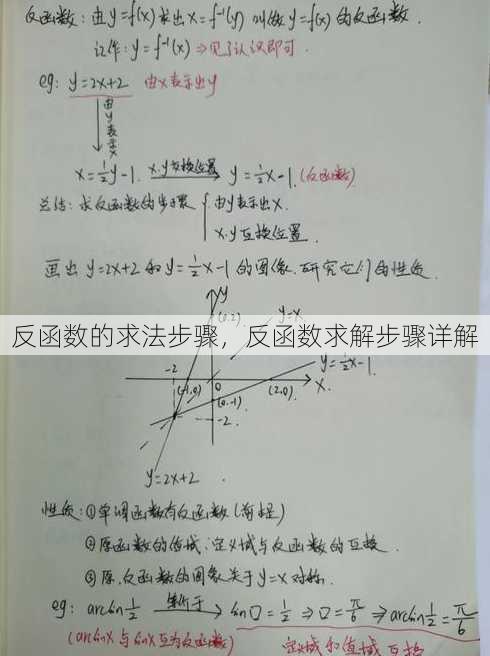 反函数：由y=f(x)求出x=f⁻¹(y)叫做y=f(x)的反函数.
记作：y=f⁻¹(x)⇒见了认识即可.
eg：y=2x+2 由x表示出y
由y表示x
x=½y-1. x.y互换位置 → y=½x-1.(反函数)
总结：求反函数的步骤 { 由y表示出x.
x.y互换位置.
画出y=2x+2和y=½x-1的图像.研究它们的性质.
y
(0,2) y=x
反函数的求法步骤，反函数求解步骤详解
-2 y=½x-1.
(-1,0) 0 (2,0) x.
(0,-1)
-2
y=2x+2
性质：①单调函数有反函数(前提)
②原函数的值域.定义域与反函数的互换.
③原.反函数的图象关于y=x对称.
eg：arcsin½ 等价于 → sin□=½ ⇒ □=π/6 ⇒ arcsin½=π/6
(arcsinx与sinx互为反函数) 定义域和值域互换